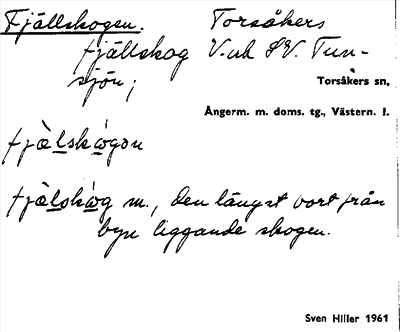 Fjällskogen. Torsåkers
fjällskog V. uk SV. Tun-
sjön;
Torsåkers sn,
Ångerm. m. doms. tg., Västern. l.
fjälskógon
fjälskóg m., den längst bort från
byn liggande skogen.
Sven Hiller 1961